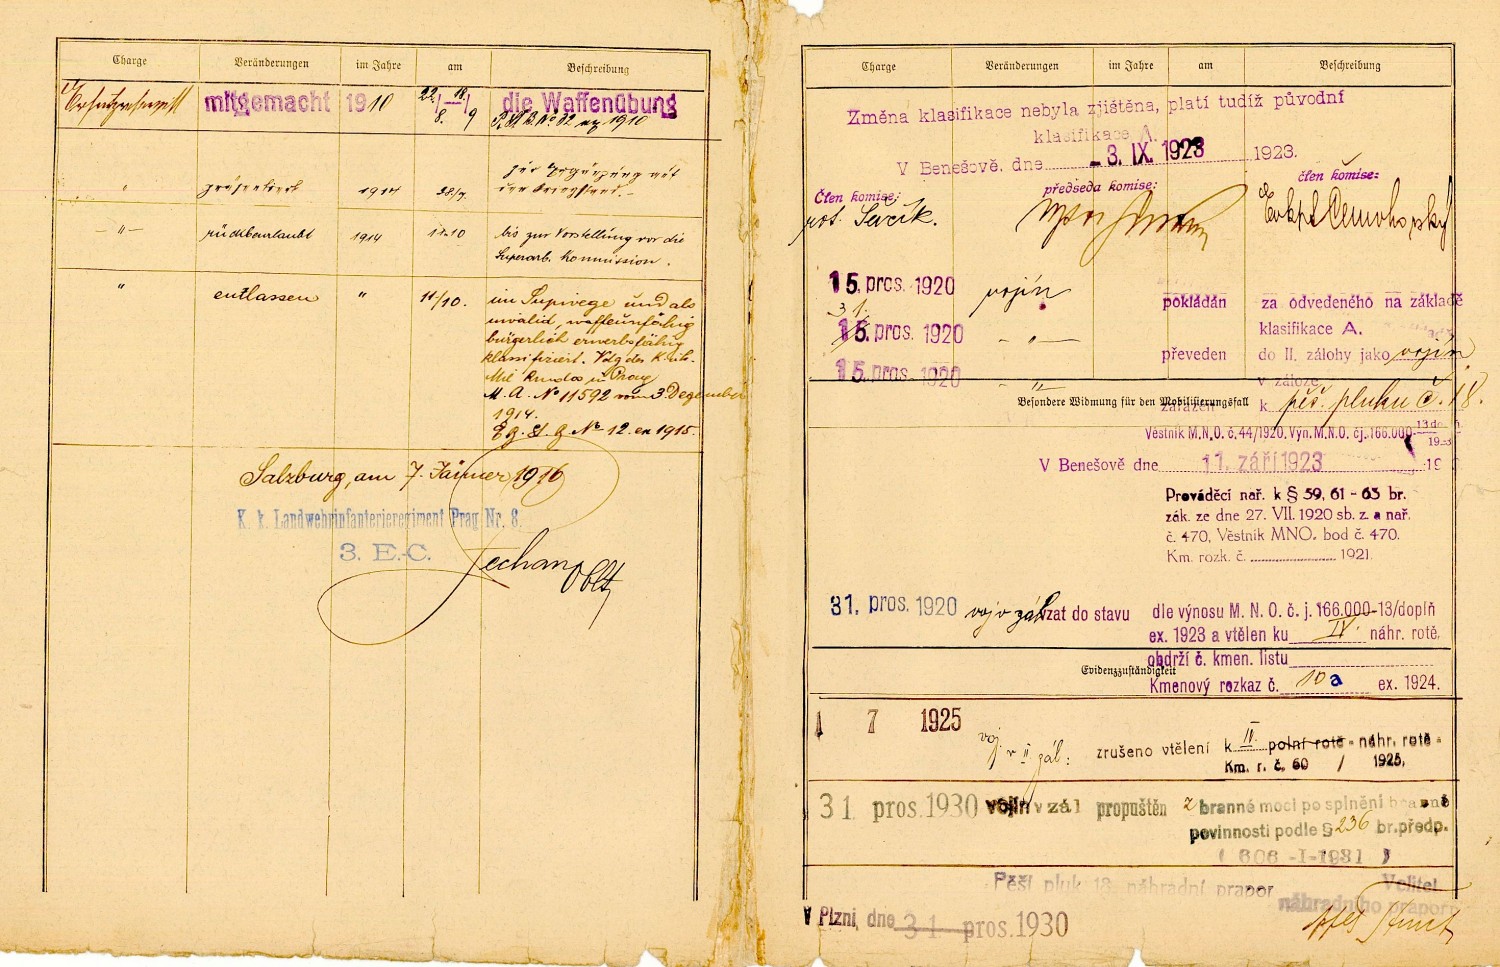 Charge Veränderungen im Jahre am Beschreibung
Ersatzreservist mitgemacht 1910 22./8. – 18./9 die Waffenübung
No 32 ex 1910
" präsentiert 1914 28./7.
den Kriegsstand.
– " – rückbeurlaubt 1914 10 bis zur Vorstellung vor die
Superarb. Kommission.
" entlassen " 11/10. im Supwege und als
invalid, waffenunfähig
bürgerlich erwerbsfähig
klassifiziert. des
Mil Kmdo in Prag
M. A. No 11592 vom 3 Dezember
1914.
No 12 ex 1915.
Salzburg, am 7. Jänner 1916
K. k. Landwehrinfanterieregiment Prag Nr. 8.
3. E.-C.
Oblt
Charge Veränderungen im Jahre am Beschreibung
Změna klasifikace nebyla zjištěna, platí tudíž původní
klasifikace A.
V Benešově, dne - 3. IX. 1923 1923.
Člen komise: předseda komise: člen komise:
Ševčík.
15. pros. 1920 vojín pokládán za odvedeného na základě
klasifikace A.
31.
15. pros. 1920 – " – převeden do II. zálohy jako vojín
v záloze
15. pros. 1920 – " –
Besondere Widmung für den Mobilisierungsfall
zařazen k pěš. pluku č. 18.
Věstník M.N.O. č. 44/1920. Výn. M.N.O. čj. 166.000
V Benešově dne 11. září 1923 19
Prováděcí nař. k § 59, 61 - 63 br.
zák. ze dne 27. VII. 1920 sb. z. a nař.
č. 470, Věstník MNO. bod č. 470.
Km. rozk. č. 1921.
31. pros. 1920 voj v zál vzat do stavu dle výnosu M. N. O. č. j. 166.000-13/doplň
ex. 1923 a vtělen ku IV. náhr. rotě,
obdrží č. kmen. listu
Evidenzzuständigkeit
Kmenový rozkaz č. 10a ex. 1924.
1 7 1925 voj. v II zál: zrušeno vtělení k IV. polní rotě - náhr. rotě -
Km. r. č. 60 / 1925.
31 pros. 1930 vojín v zál propuštěn z branné moci po splnění branné
povinnosti podle § 236 br. předp.
( 606 -I-1931 )
Pěší pluk 18. náhradní prapor Velitel
náhradního praporu
V Plzni, dne 31 pros. 1930